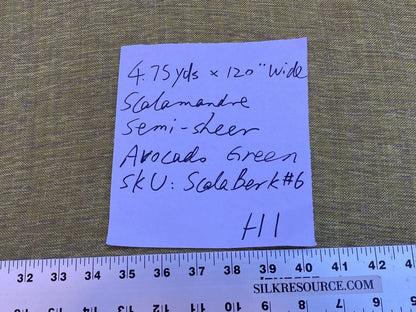 4.75yds × 120" wide
Scalamandre
Semi-sheer
Avocado Green
SKU: ScalaBerk#6
H1
32 33 34 35 36 37 38 39 40 41 42
SILKRESOURCE.COM